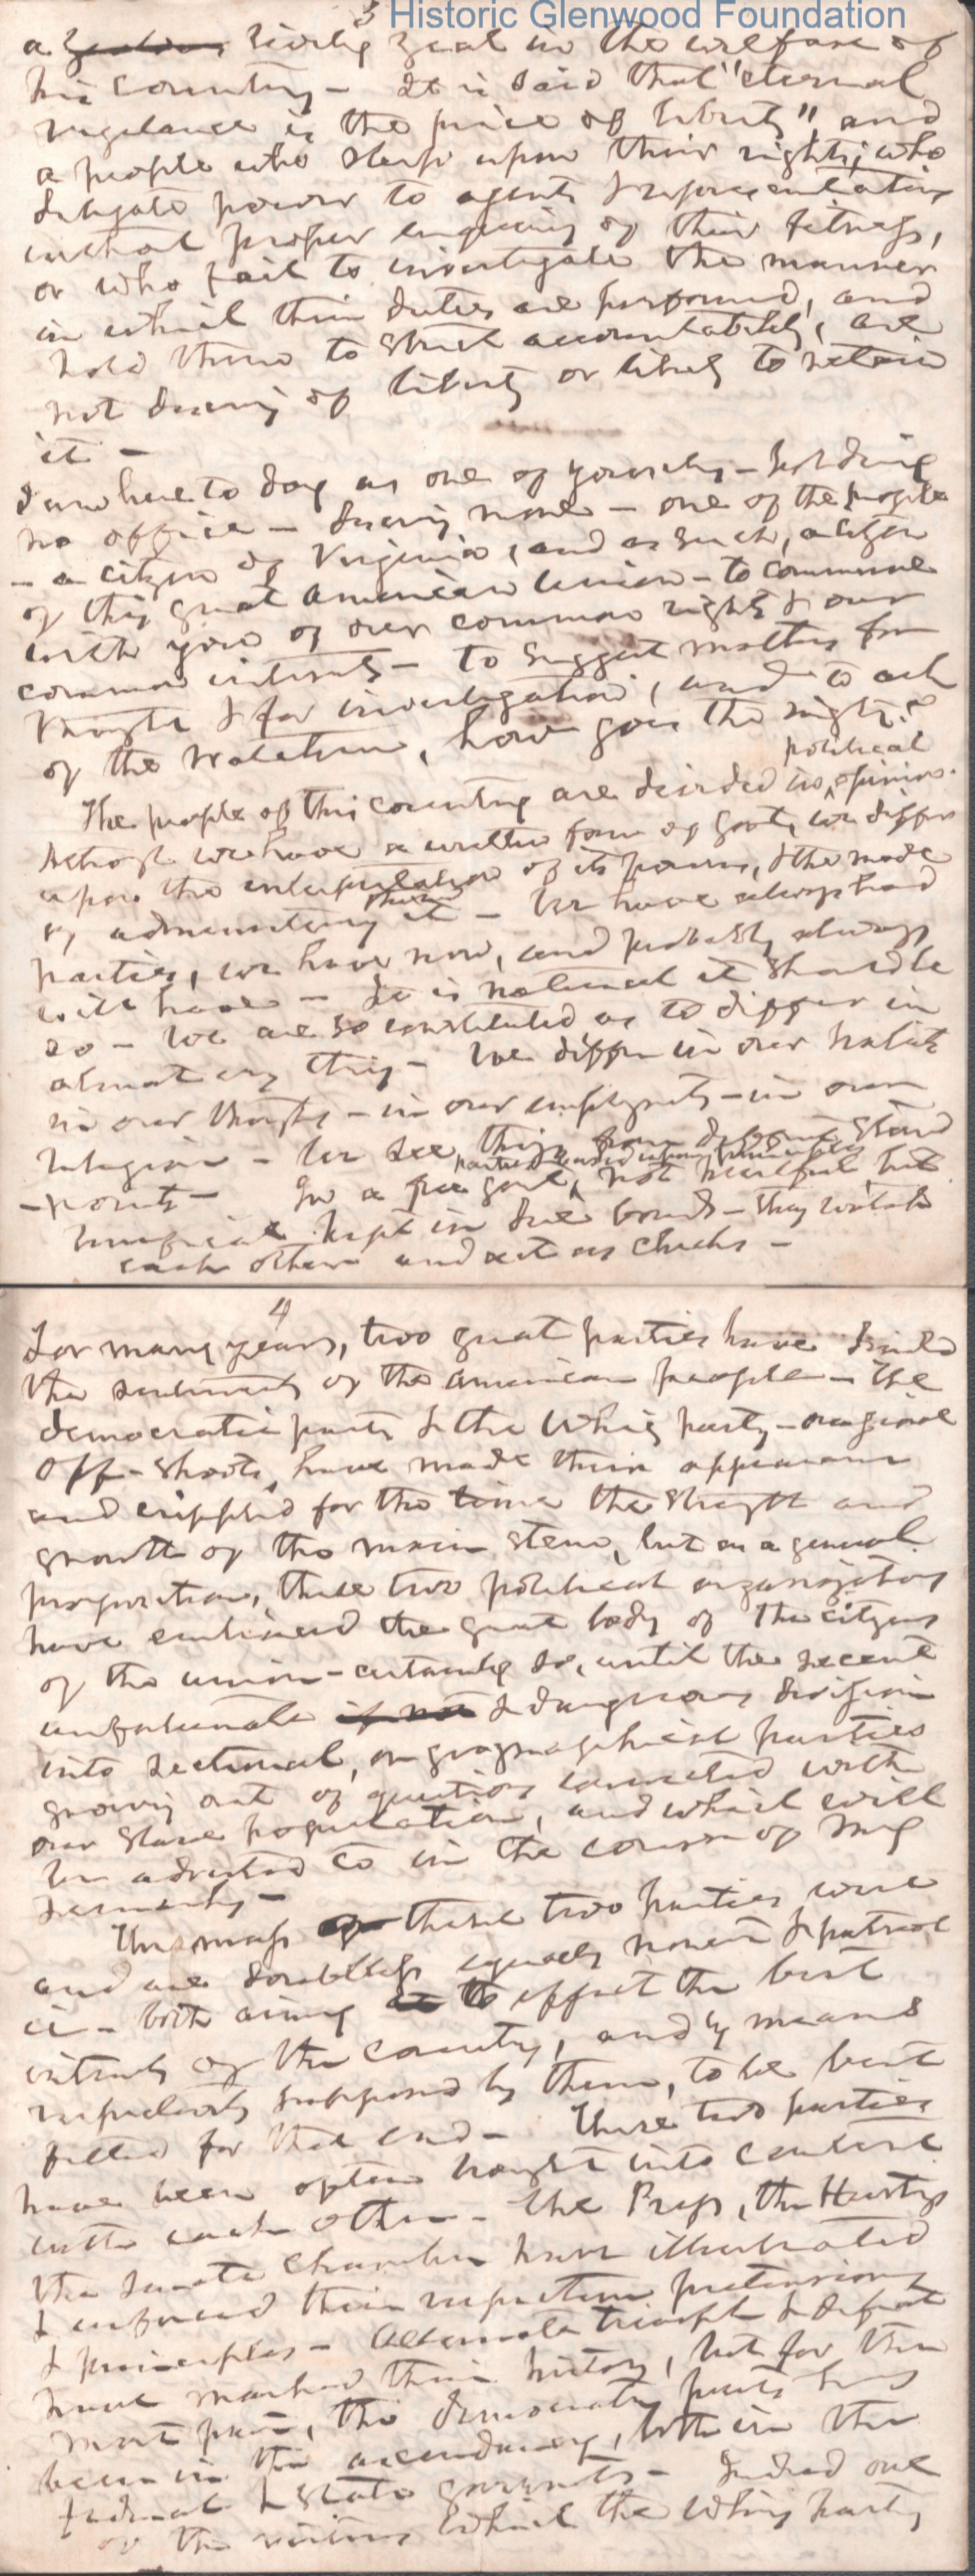 Historic Glenwood Foundation
3
a zealous, living zeal in the welfare of
his country - It is said that "eternal
vigilance is the price of liberty" and
a people who sleep upon their rights; who
delegate power to agents & representatives
without proper enquiry of their fitness,
or who fail to investigate the manner
in which their duties are performed, and
hold them to strict accountability, are
not deserving of liberty or likely to retain
it -
I am here to day as one of yourselves - holding
no office - desiring none - one of the people
- a citizen of Virginia, and as such, a citizen
of this great American Union - to commune
with you of our common rights & our
common interests - to suggest matters for
thought & for investigation, and to ask
of the watchman, how goes the night?
political
The people of this country are divided in opinion.
Although we have a written form of govt, we differ
upon the interpretation of its powers, & the mode
of administering it - We have always had
parties, we have now, and probably always
will have - It is natural it should be
so - We are so constituted as to differ in
almost every thing - We differ in our habits
in our thoughts - in our employments - in our
religion - We see things from different stand
-points - In a free govt, not hurtful but
parties based upon principles
beneficial kept in due bounds - they watch
each other and act as checks -
4
For many years, two great parties have divided
the sentiments of the American people - the
democratic party & the Whig party - occasional
off-shoots, have made their appearance
and crippled for the time the strength and
growth of the main stem, but as a general
proposition, these two political organizations
have embraced the great body of the citizens
of the union - certainly so, until the recent
unfortunate if not & dangerous division
into sectional, or geographical parties
growing out of questions connected with
our slave population, and which will
be adverted to in the course of my
remarks -
The mass of these two parties were
and are doubtless equally honest & patriot
ic - both aiming to effect the best
interests of the country, and by means
respectively supposed by them, to be best
fitted for that end - These two parties
have been often brought into contest
with each other - The Press, the Hustings
the Senate Chamber have illustrated
& enforced their respective pretensions
& principles - Alternate triumph & defeat
have marked their history, but for the
most part, the democratic party has
been in the ascendancy, both in the
federal & State governments - Indeed one
of the which the Whig party